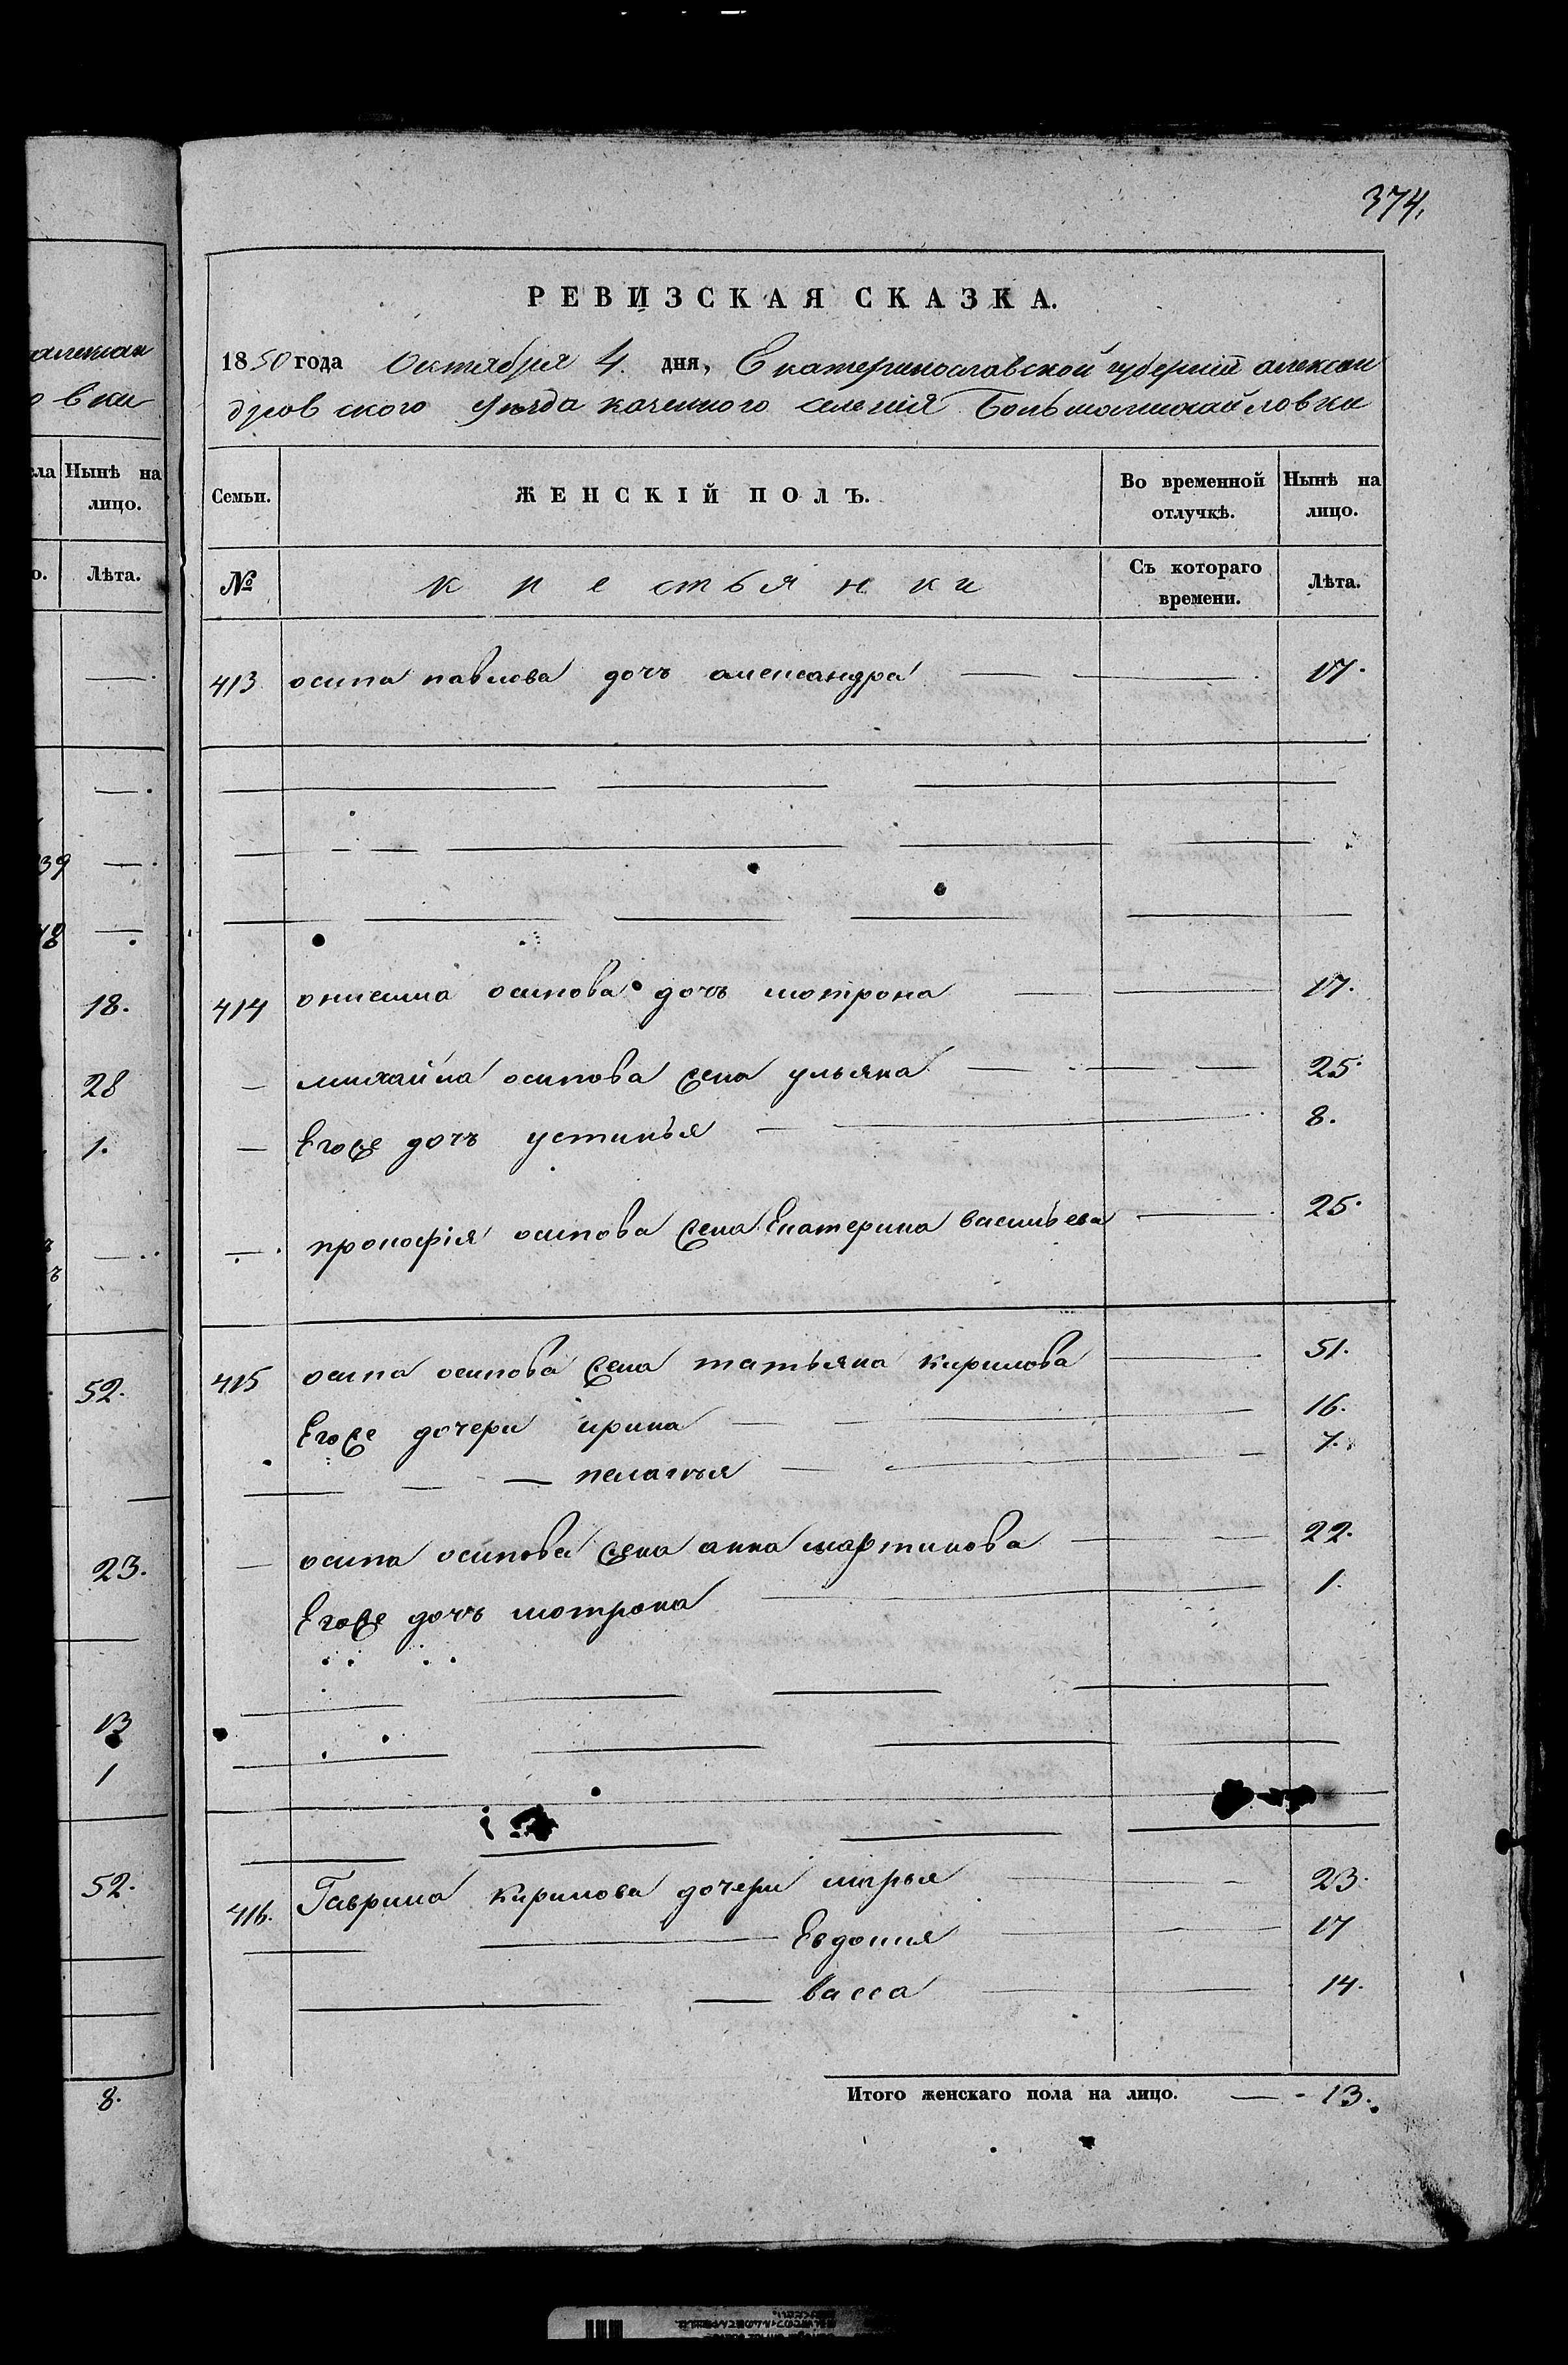 374.
РЕВИЗСКАЯ СКАЗКА.
1850 года Октября 4. дня, Екатеринославской губернiи алексан
дровского уѣзда казенного селенiя Большомихайловки
Семьи.
ЖЕНСКІЙ ПОЛЪ.
Во временной отлучкѣ.
Нынѣ на лицо.
№
крестьянки
Съ котораго времени.
Лѣта.
413 осипа павлова дочъ александра 17.
414 онисима осипова дочъ мотрона 17.
михайла осипова жена ульяна 25.
Егоже дочъ устинья 8.
прокофiя осипова жена Екатерина васильева 25.
415 осипа осипова жена татьяна кирилова 51.
Егоже дочери ирина 16.
пелагия 7.
осипа осипова жена анна мартинова 22.
Егоже дочъ мотрона 1.
416. Гаврила кирилова дочери марья 23.
Евдокия 17
васса 14.
Итого женскаго пола на лицо. 13.
Нынѣ на
лицо.
Лѣта.
39
18.
28
1.
52.
23.
13
1
52.
8.